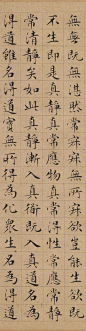 無無既無湛然常寂寂無所寂欲豈能生欲既
不生即是真靜真常應物真常得性常應常靜
常清靜矣如此真靜漸入真道既入真道名為
得道雖名得道實無所得為化眾生名為得道